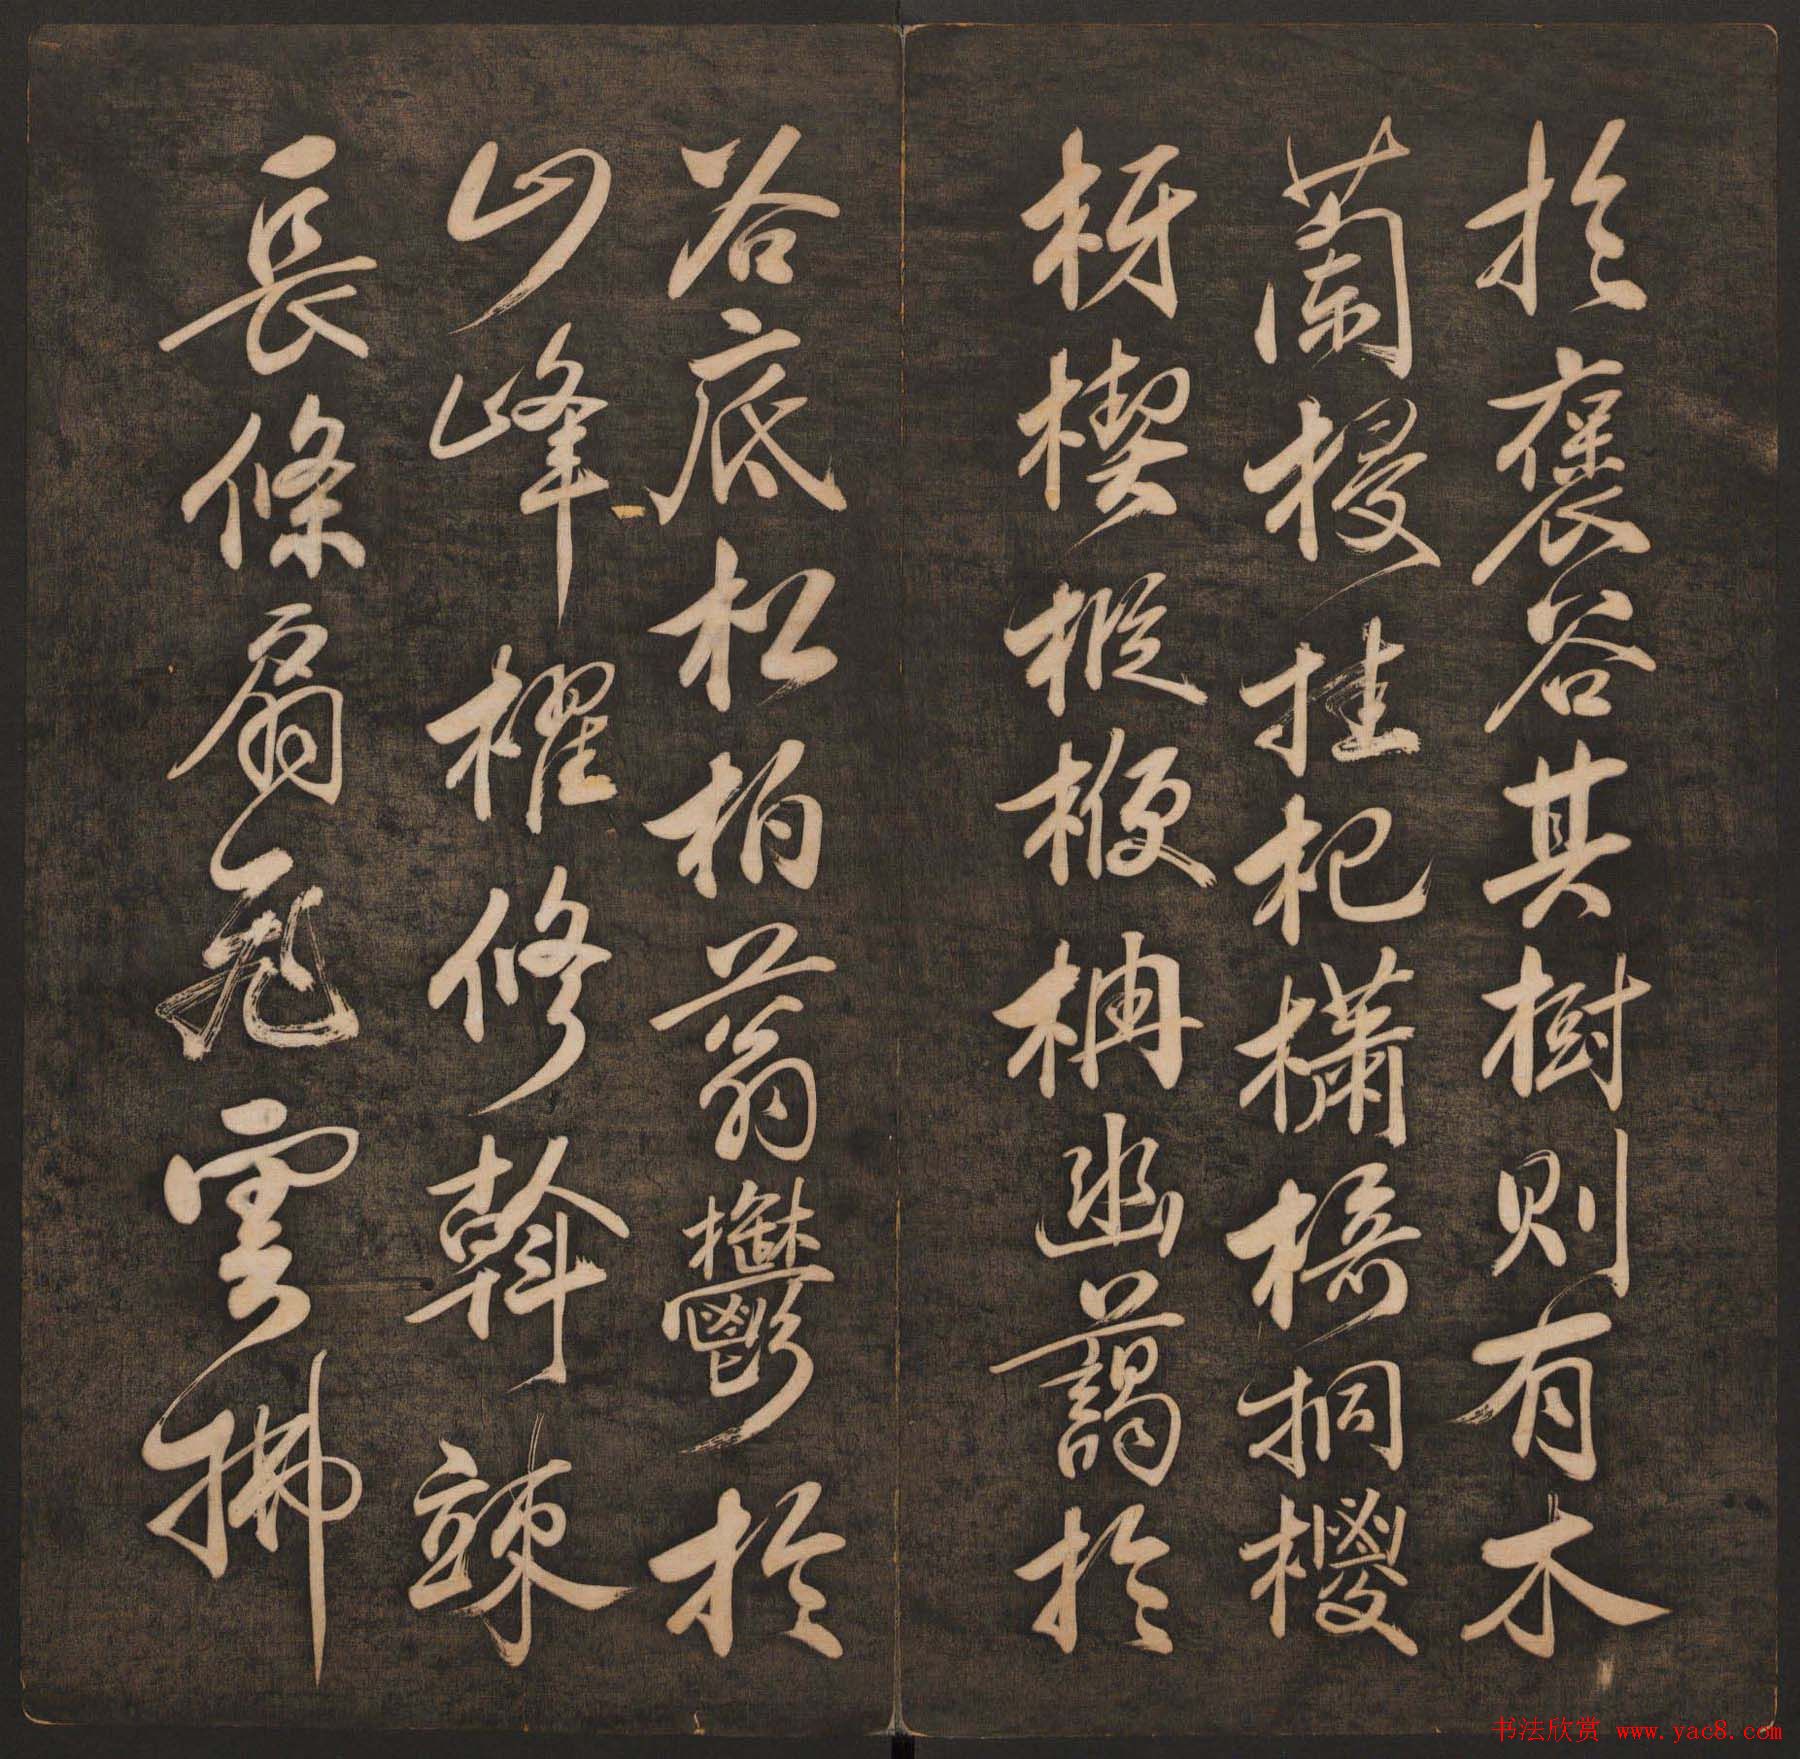 於褒谷其樹則有木
蘭梫桂杞櫹椅桐椶
枒楔樅楩柟幽藹於
谷底松柏蓊鬱於
山峰擢修幹竦
長條扇飛雲拂
书法欣赏 www.yac8.com